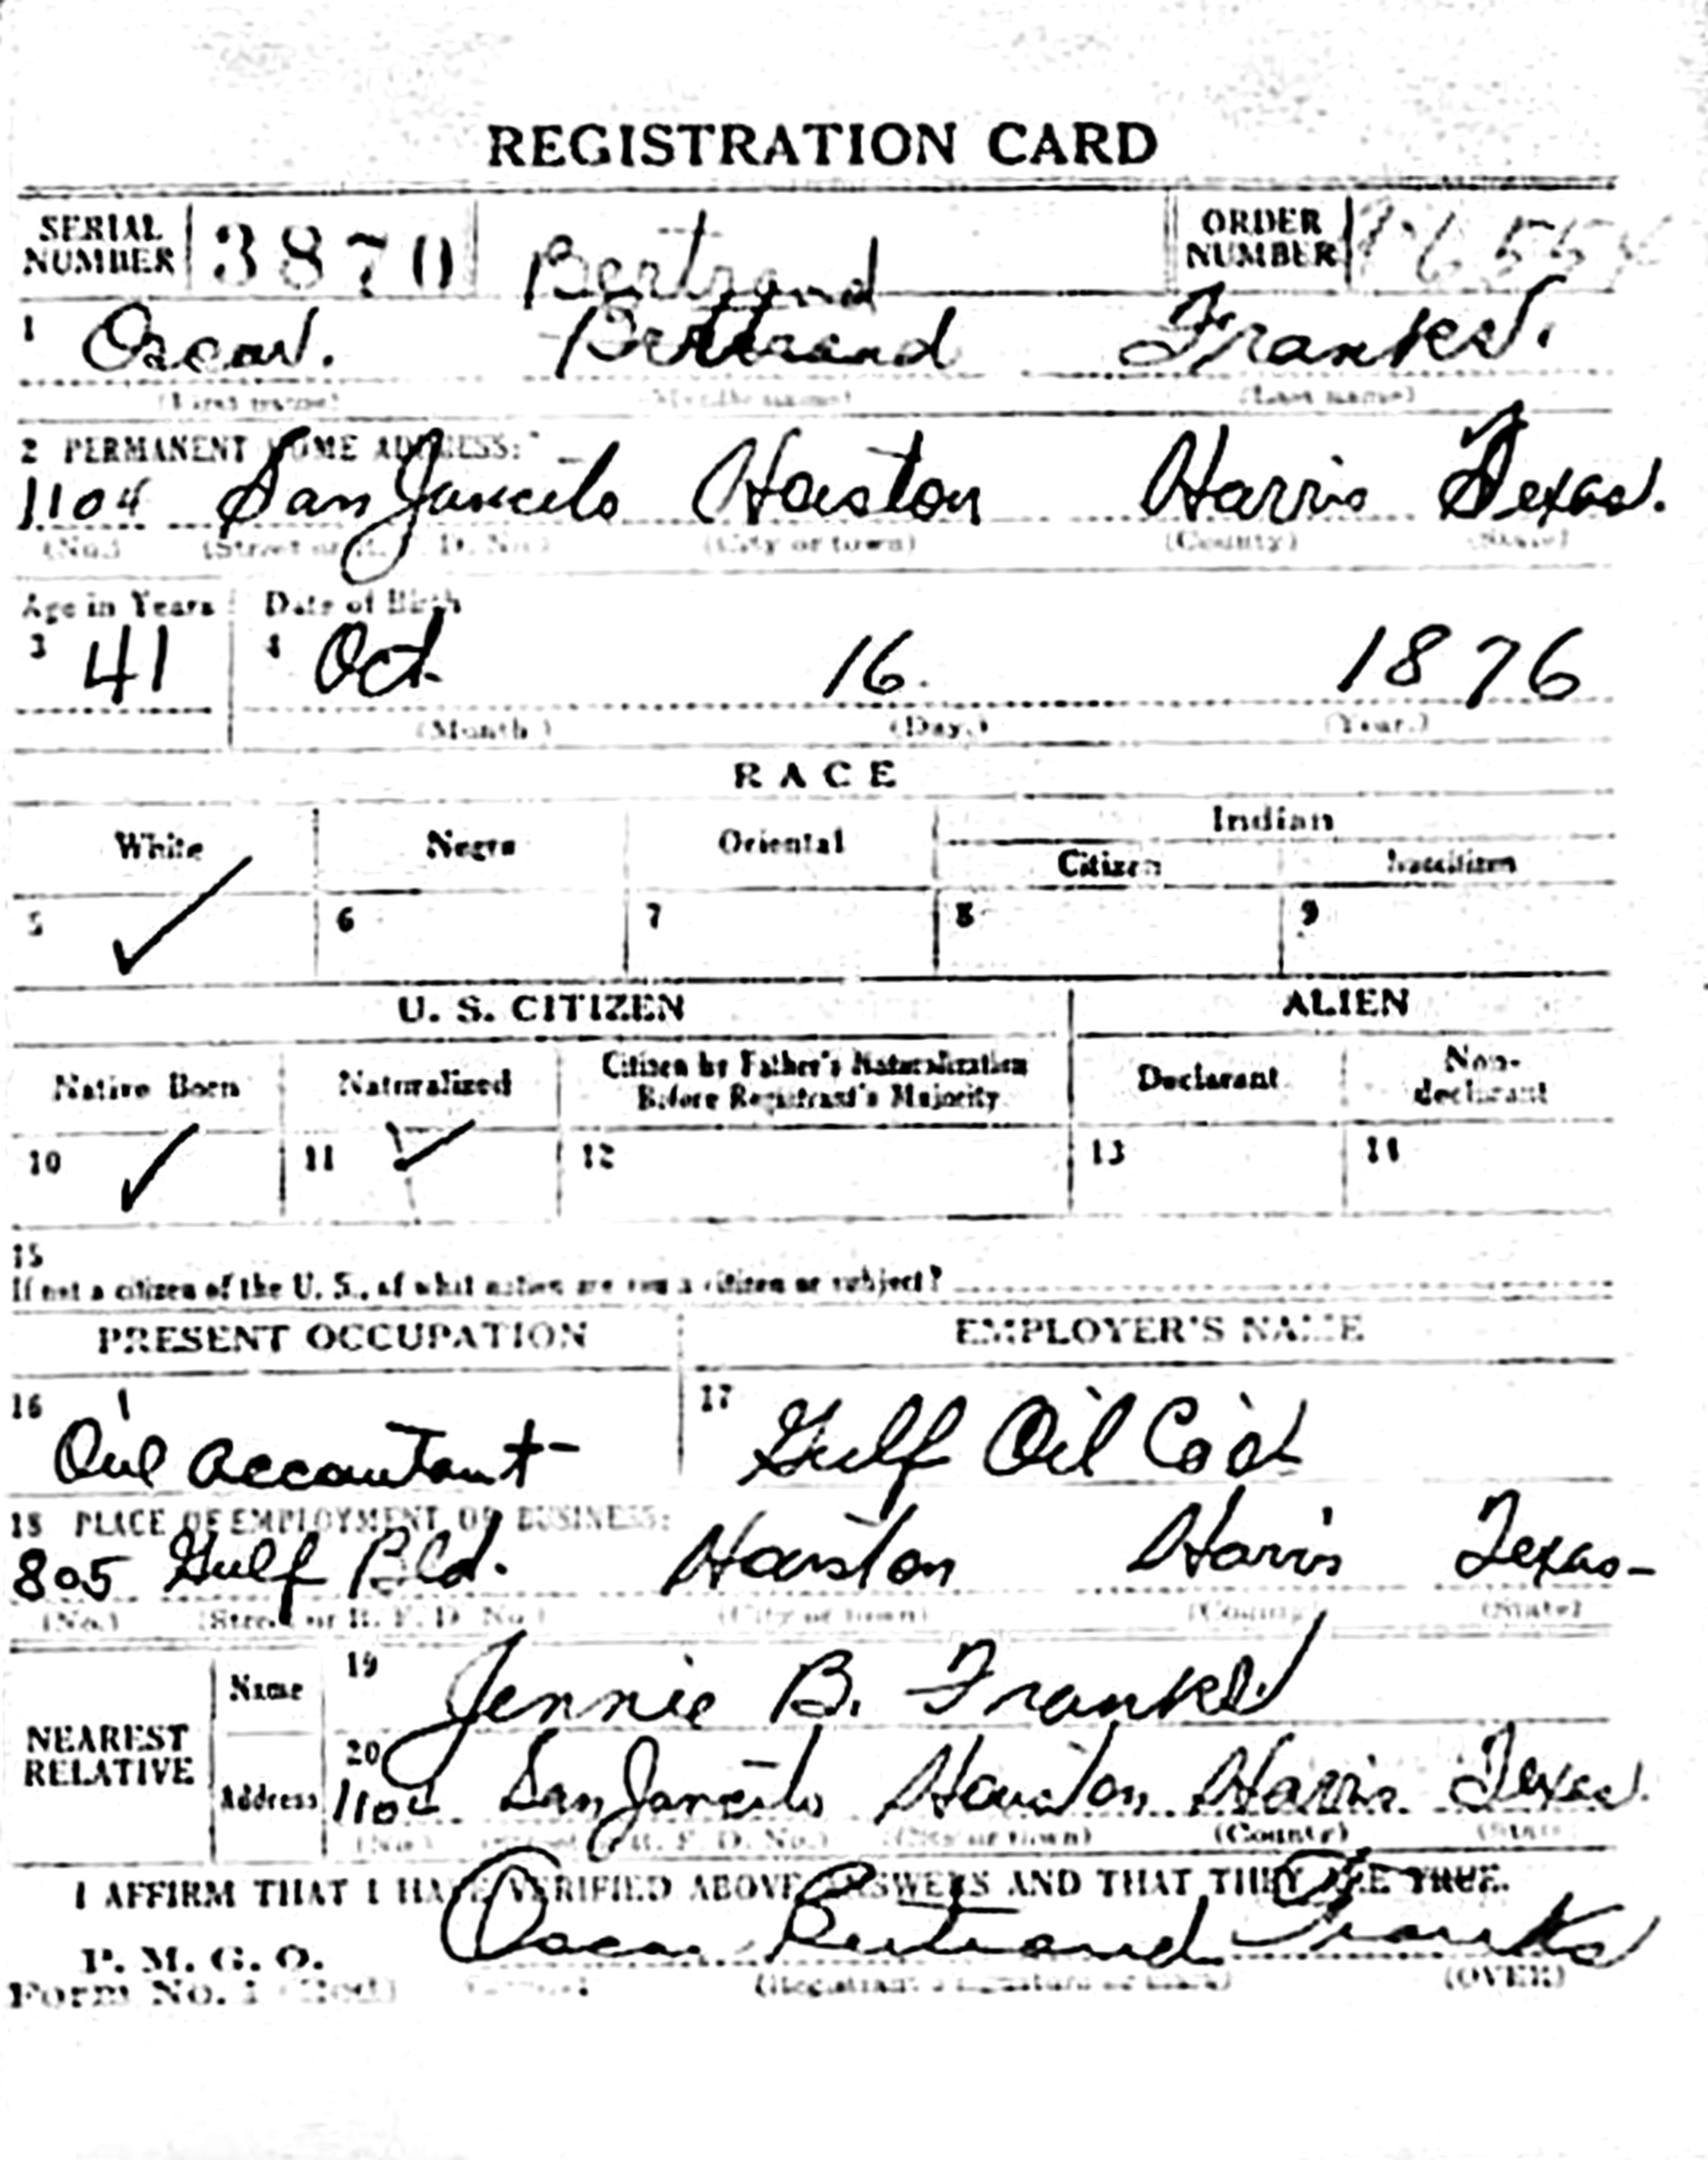 REGISTRATION CARD
SERIAL NUMBER 3870 Bertrand ORDER NUMBER
1 Oscar. Bertrand Franks.
(First name) (Middle name) (Last name)
2 PERMANENT HOME ADDRESS:
1104 San Jancito Houston Harris Texas.
(No.) (Street or R. F. D. No.) (City or town) (County) (State)
Age in Years Date of Birth
3 41 4 Oct. 16. 1876
(Month.) (Day.) (Year.)
RACE
White Negro Oriental Indian
Citizen Noncitizen
5 ✓ 6 7 8 9
U. S. CITIZEN ALIEN
Native Born Naturalized Citizen by Father's Naturalization Before Registrant's Majority Declarant Non-declarant
10 ✓ 11 ✓ 12 13 14
15
If not a citizen of the U. S., of what nation are you a citizen or subject?
PRESENT OCCUPATION EMPLOYER'S NAME
16 Oil Accountant 17 Gulf Oil Co
18 PLACE OF EMPLOYMENT OR BUSINESS:
805 Gulf Bld. Houston Harris Texas-
(No.) (Street or R. F. D. No.) (City or town) (County) (State)
NEAREST RELATIVE
Name 19 Jennie B. Franks
Address 20 1104 San Jancito Houston Harris Texas.
(No.) (Street or R. F. D. No.) (City or town) (County) (State)
I AFFIRM THAT I HAVE VERIFIED ABOVE ANSWERS AND THAT THEY ARE TRUE.
P. M. G. O.
Form No. 1 (Red) Oscar Bertrand Franks
(Registrant's signature or mark) (OVER)